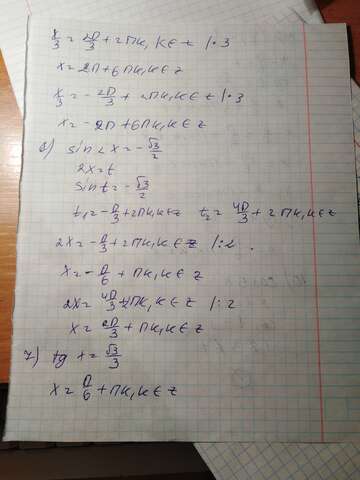 x/3 = 2π/3 + 2πk, k∈z |·3
x = 2π + 6πk, k∈z
x/3 = - 2π/3 + 2πk, k∈z |·3
x = - 2π + 6πk, k∈z
6) sin 2x = - √3/2
2x = t
sin t = - √3/2
t₁ = - π/3 + 2πk, k∈z t₂ = 4π/3 + 2πk, k∈z
2x = - π/3 + 2πk, k∈z |:2
x = - π/6 + πk, k∈z
2x = 4π/3 + 2πk, k∈z |:2
x = 2π/3 + πk, k∈z
7) tg x = √3/3
x = π/6 + πk, k∈z